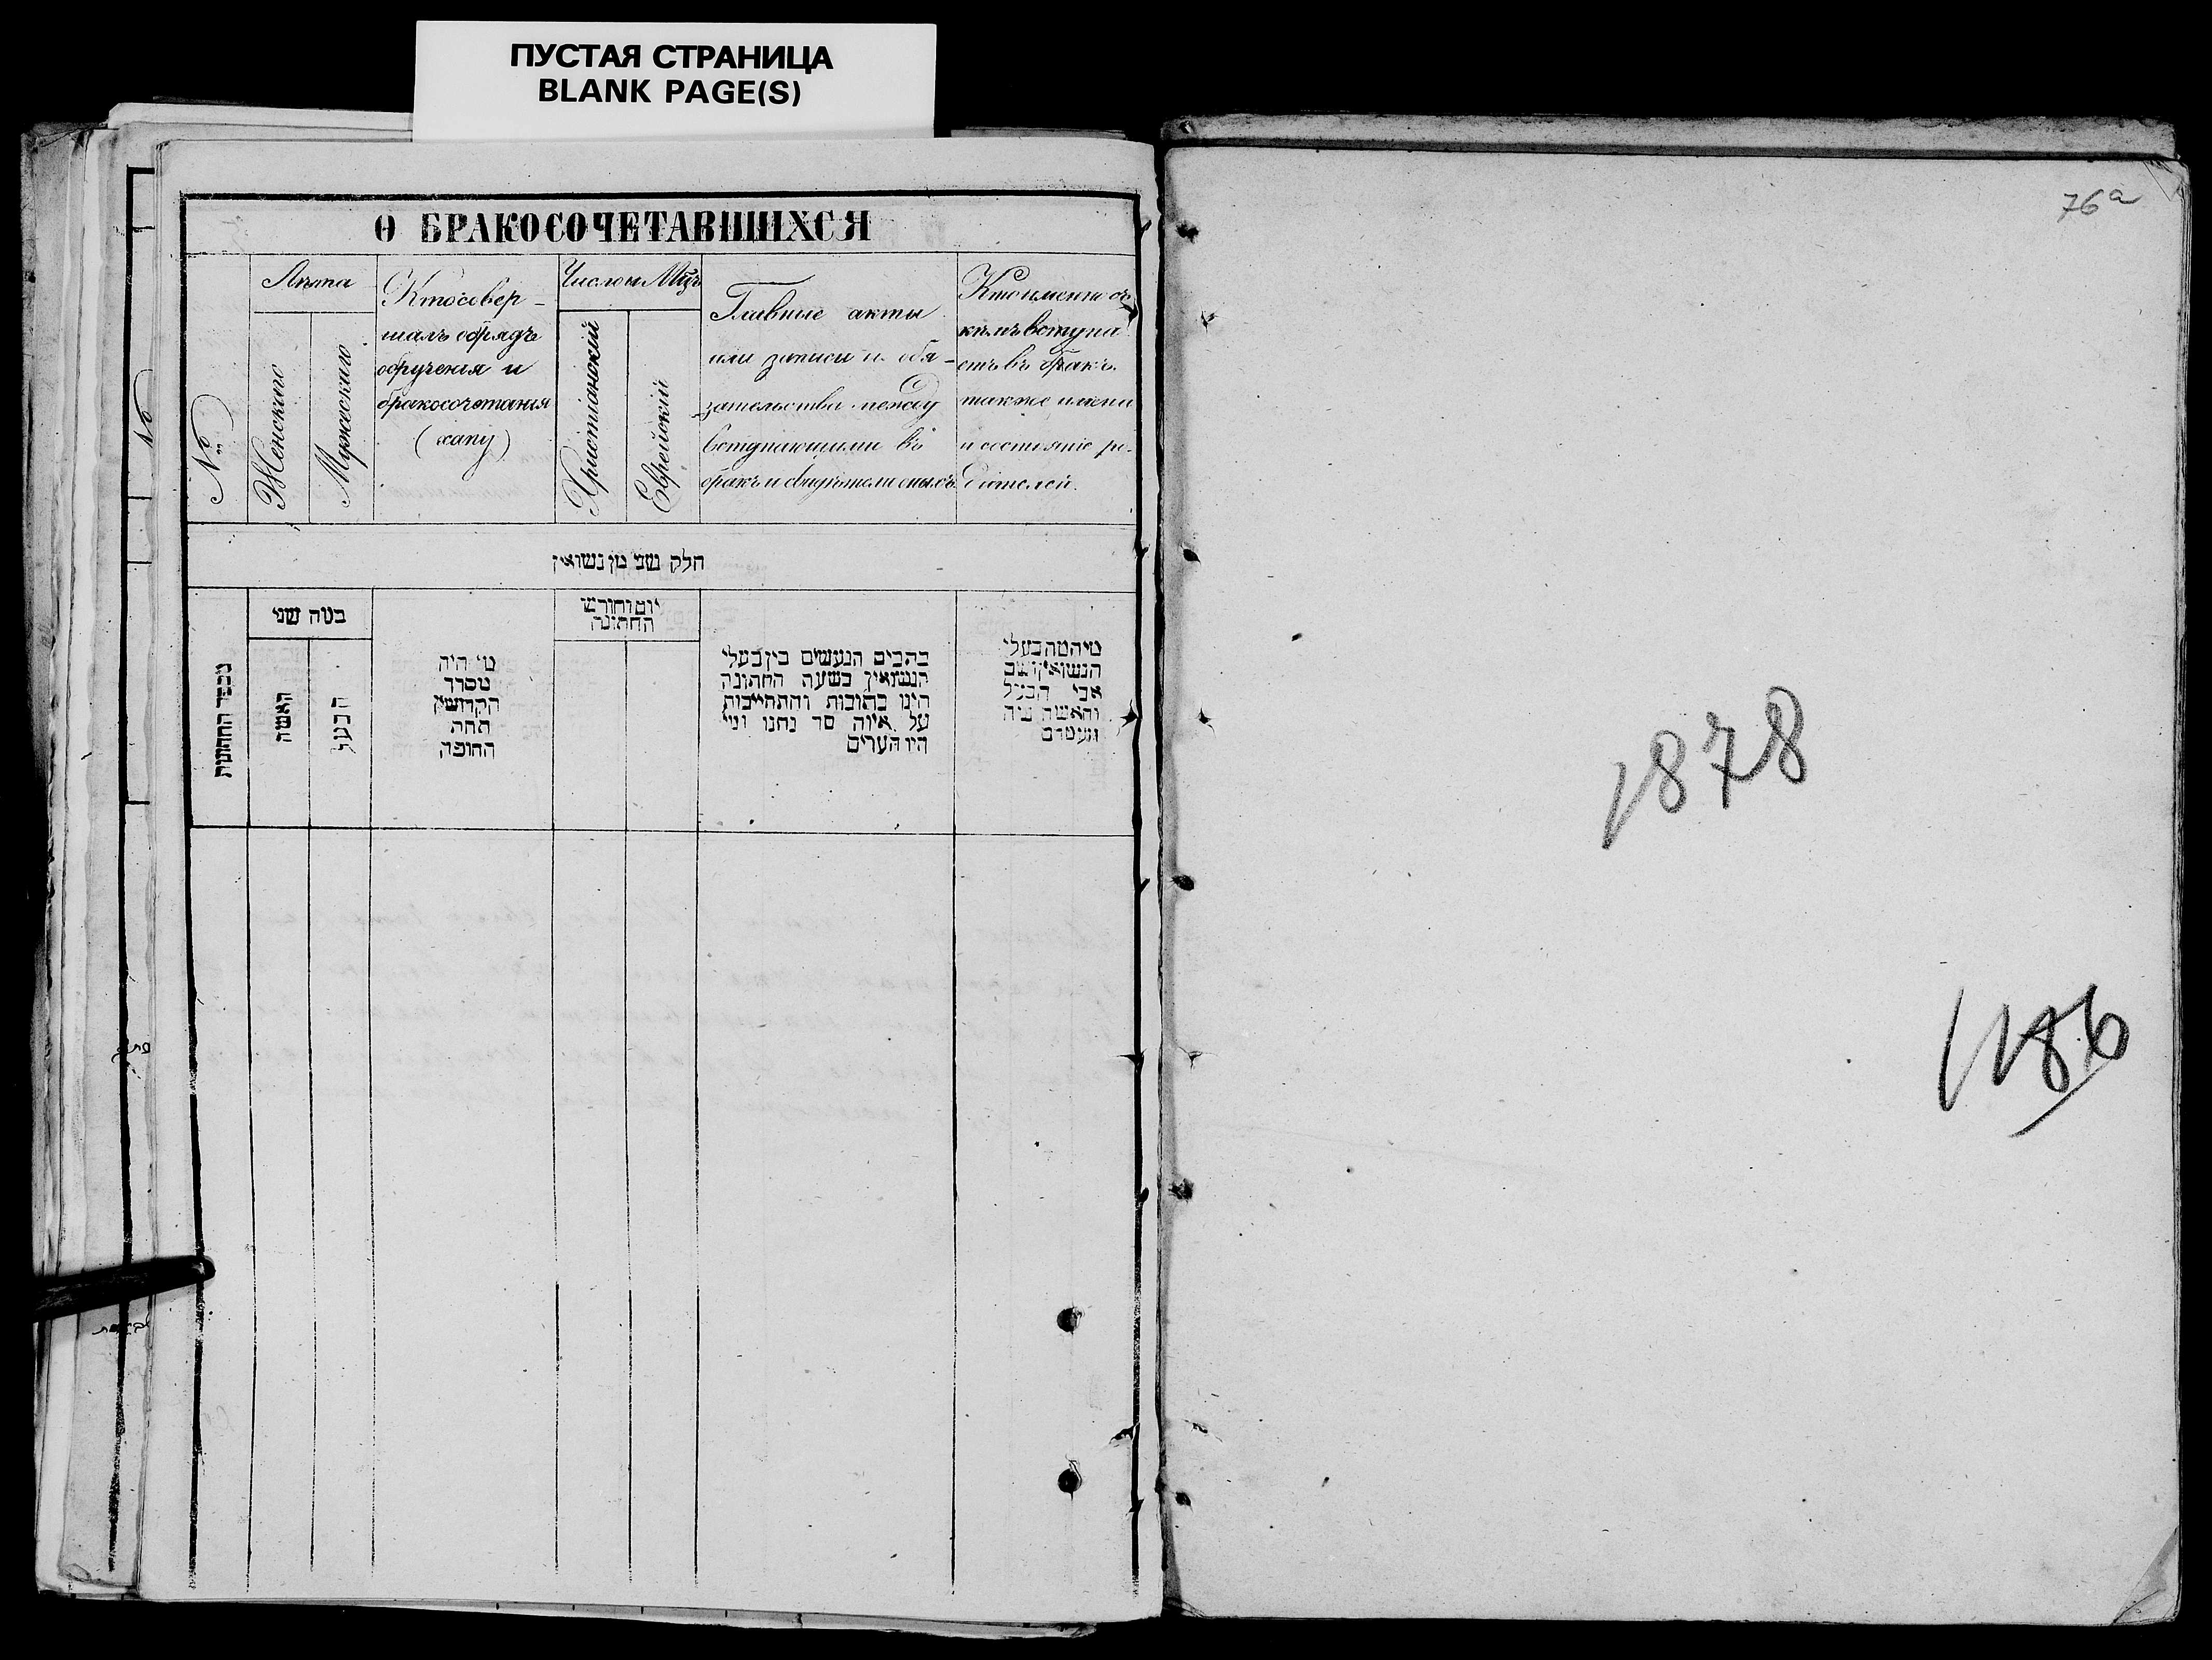 ПУСТАЯ СТРАНИЦА
BLANK PAGE(S)
О БРАКОСОЧЕТАВШИХСЯ
№
Лѣта
Женскаго
Мужескаго
Кто совер-
шалъ обрядъ
обрученія и
бракосочетанія
(хапу)
Число и Мцъ
Христіанскій
Еврейскій
Главные акты
или записи и обя-
зательства между
вступающими въ
бракъ и свидѣтели оныхъ
Кто именно съ
кѣмъ вступа
етъ въ бракъ.
также имена
и состояніе ро-
дителей.
חלק שני מן נשואין
מספר החתונות
כמה שני
האשה
הבעל
מי היה
מסדר
הקדושין
תחת
החופה
יום וחודש
החתונה
כתבים הנעשים בין בעלי
הנשואין בשעת החתונה
היינו כתובות והתחייבות
על איזה סך נתנו ומי
היו העדים
מי המה בעלי
הנשואין ושם
אבי הבעל
והאשה
76а
1878
1186